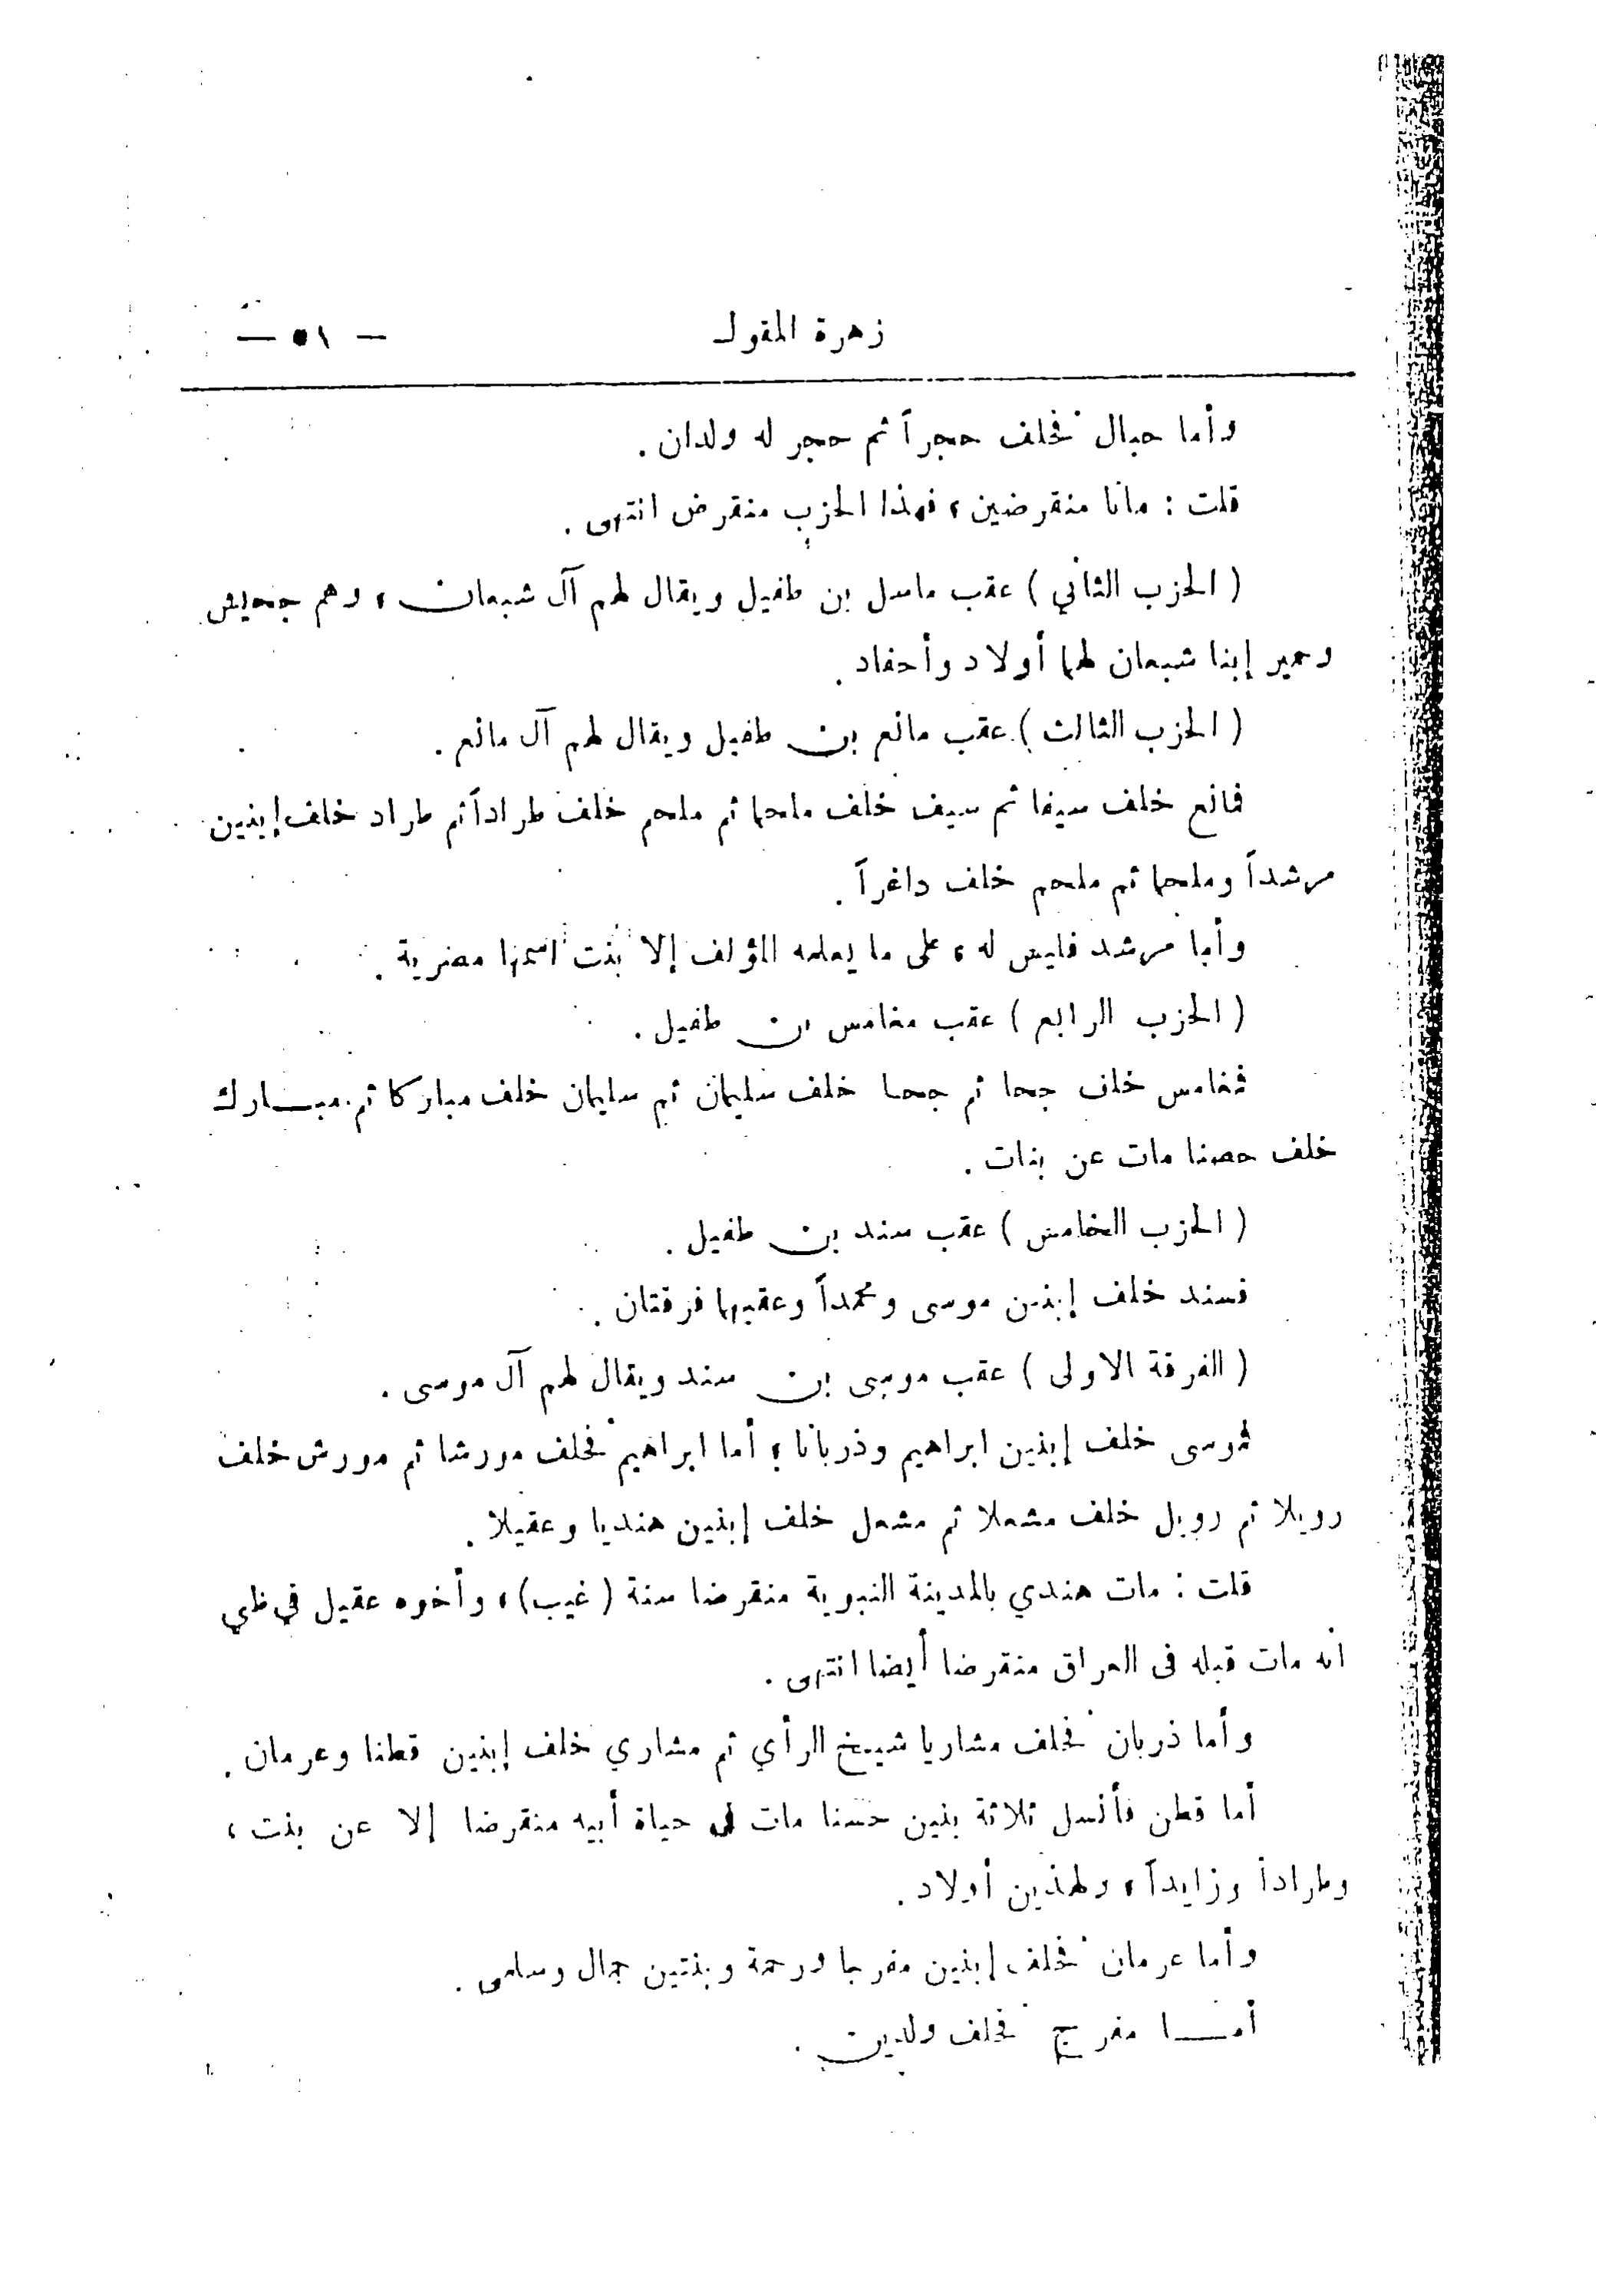 زهرة المقول — ٥١ —
وأما حبال فخلف حجراً ثم حجر له ولدان .
قلت : ماتا منقرضين ، فهذا الحزب منقرض انتهى .
( الحزب الثاني ) عقب ماسل بن طفيل ويقال لهم آل شبعان ، وهم جحيش
وحمير إبنا شبعان لهما أولاد وأحفاد .
( الحزب الثالث ) عقب مانع بن طفيل ويقال لهم آل مانع .
فمانع خلف سيفا ثم سيف خلف ملحما ثم ملحم خلف طراداً ثم طراد خلف إبنين
مرشداً وملحما ثم ملحم خلف داغراً .
وأما مرشد فليس له ، على ما يعلمه المؤلف إلا بنت اسمها مضرية .
( الحزب الرابع ) عقب مغامس بن طفيل .
فمغامس خلف جحا ثم جحا خلف سليمان ثم سليمان خلف مباركا ثم مبارك
خلف حصنا مات عن بنات .
( الحزب الخامس ) عقب سند بن طفيل .
فسند خلف إبنين موسى ومحمداً وعقبهما فرقتان .
( الفرقة الاولى ) عقب موسى بن سند ويقال لهم آل موسى .
فموسى خلف إبنين ابراهيم وذربانا ؛ أما ابراهيم فخلف مورشا ثم مورش خلف
رويلا ثم رويل خلف مشعلا ثم مشعل خلف إبنين هنديا وعقيلا .
قلت : مات هندي بالمدينة النبوية منقرضا سنة ( غيب ) ، وأخوه عقيل في ظني
انه مات قبله في العراق منقرضا أيضا انتهى .
وأما ذربان فخلف مشاريا شيخ الرأي ثم مشاري خلف إبنين قطنا وعرمان .
أما قطن فأنسل ثلاثة بنين حسنا مات في حياة أبيه منقرضا إلا عن بنت ،
وطراداً وزايداً ، ولهذين أولاد .
وأما عرمان فخلف إبنين مفرجا ورحمة وبنتين جمال وسلمى .
أما مفرج فخلف ولدين .